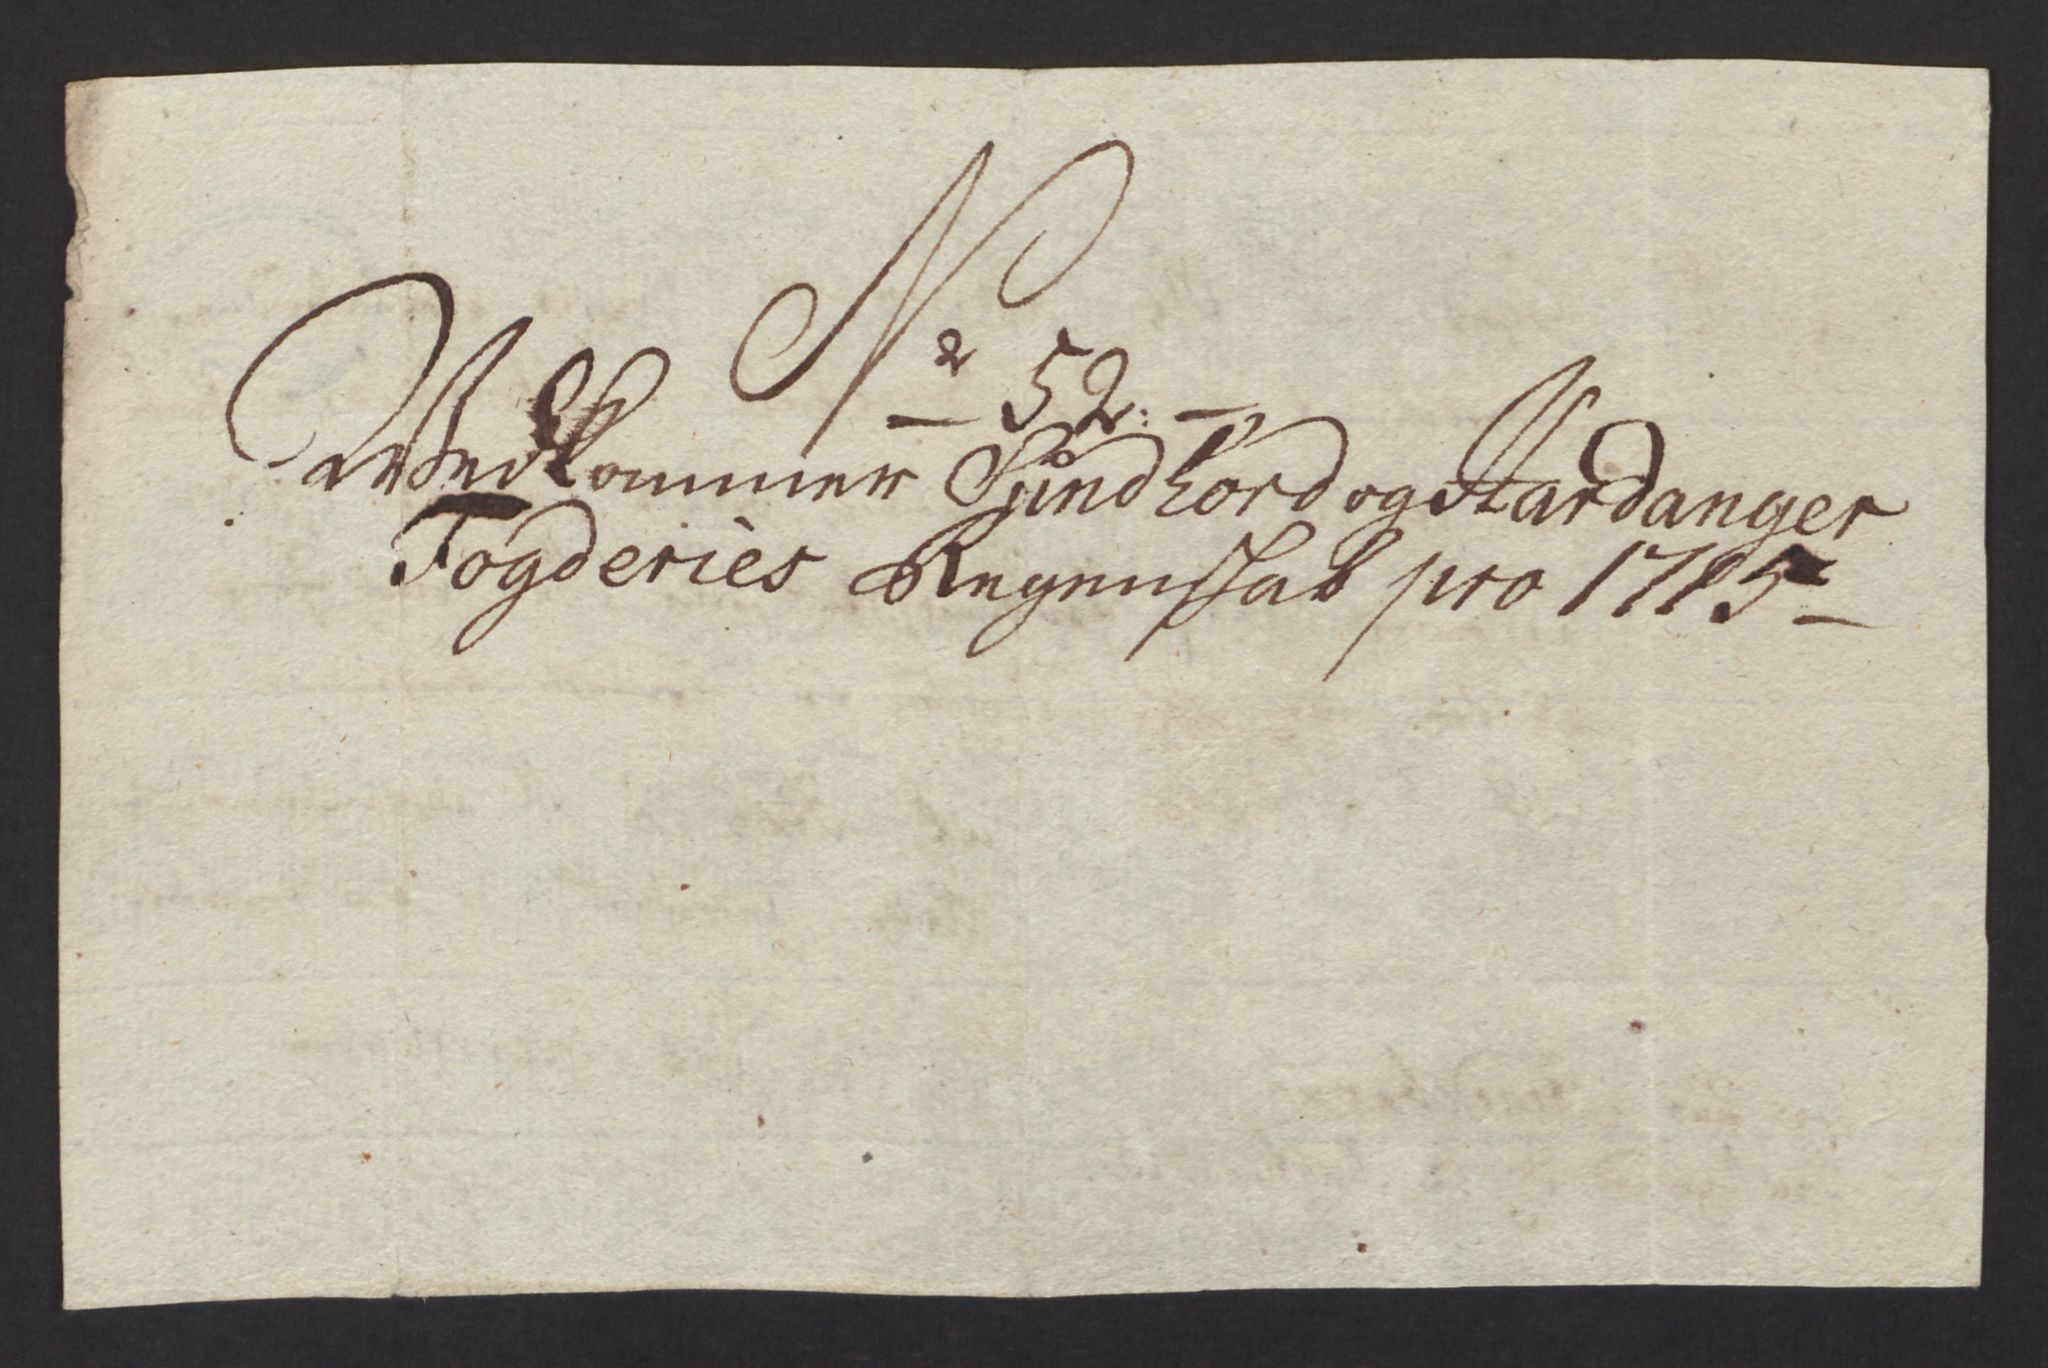 No 52.
Vedkommer Sundhord og Hardanger
Fogderies Regenskab pro 1715